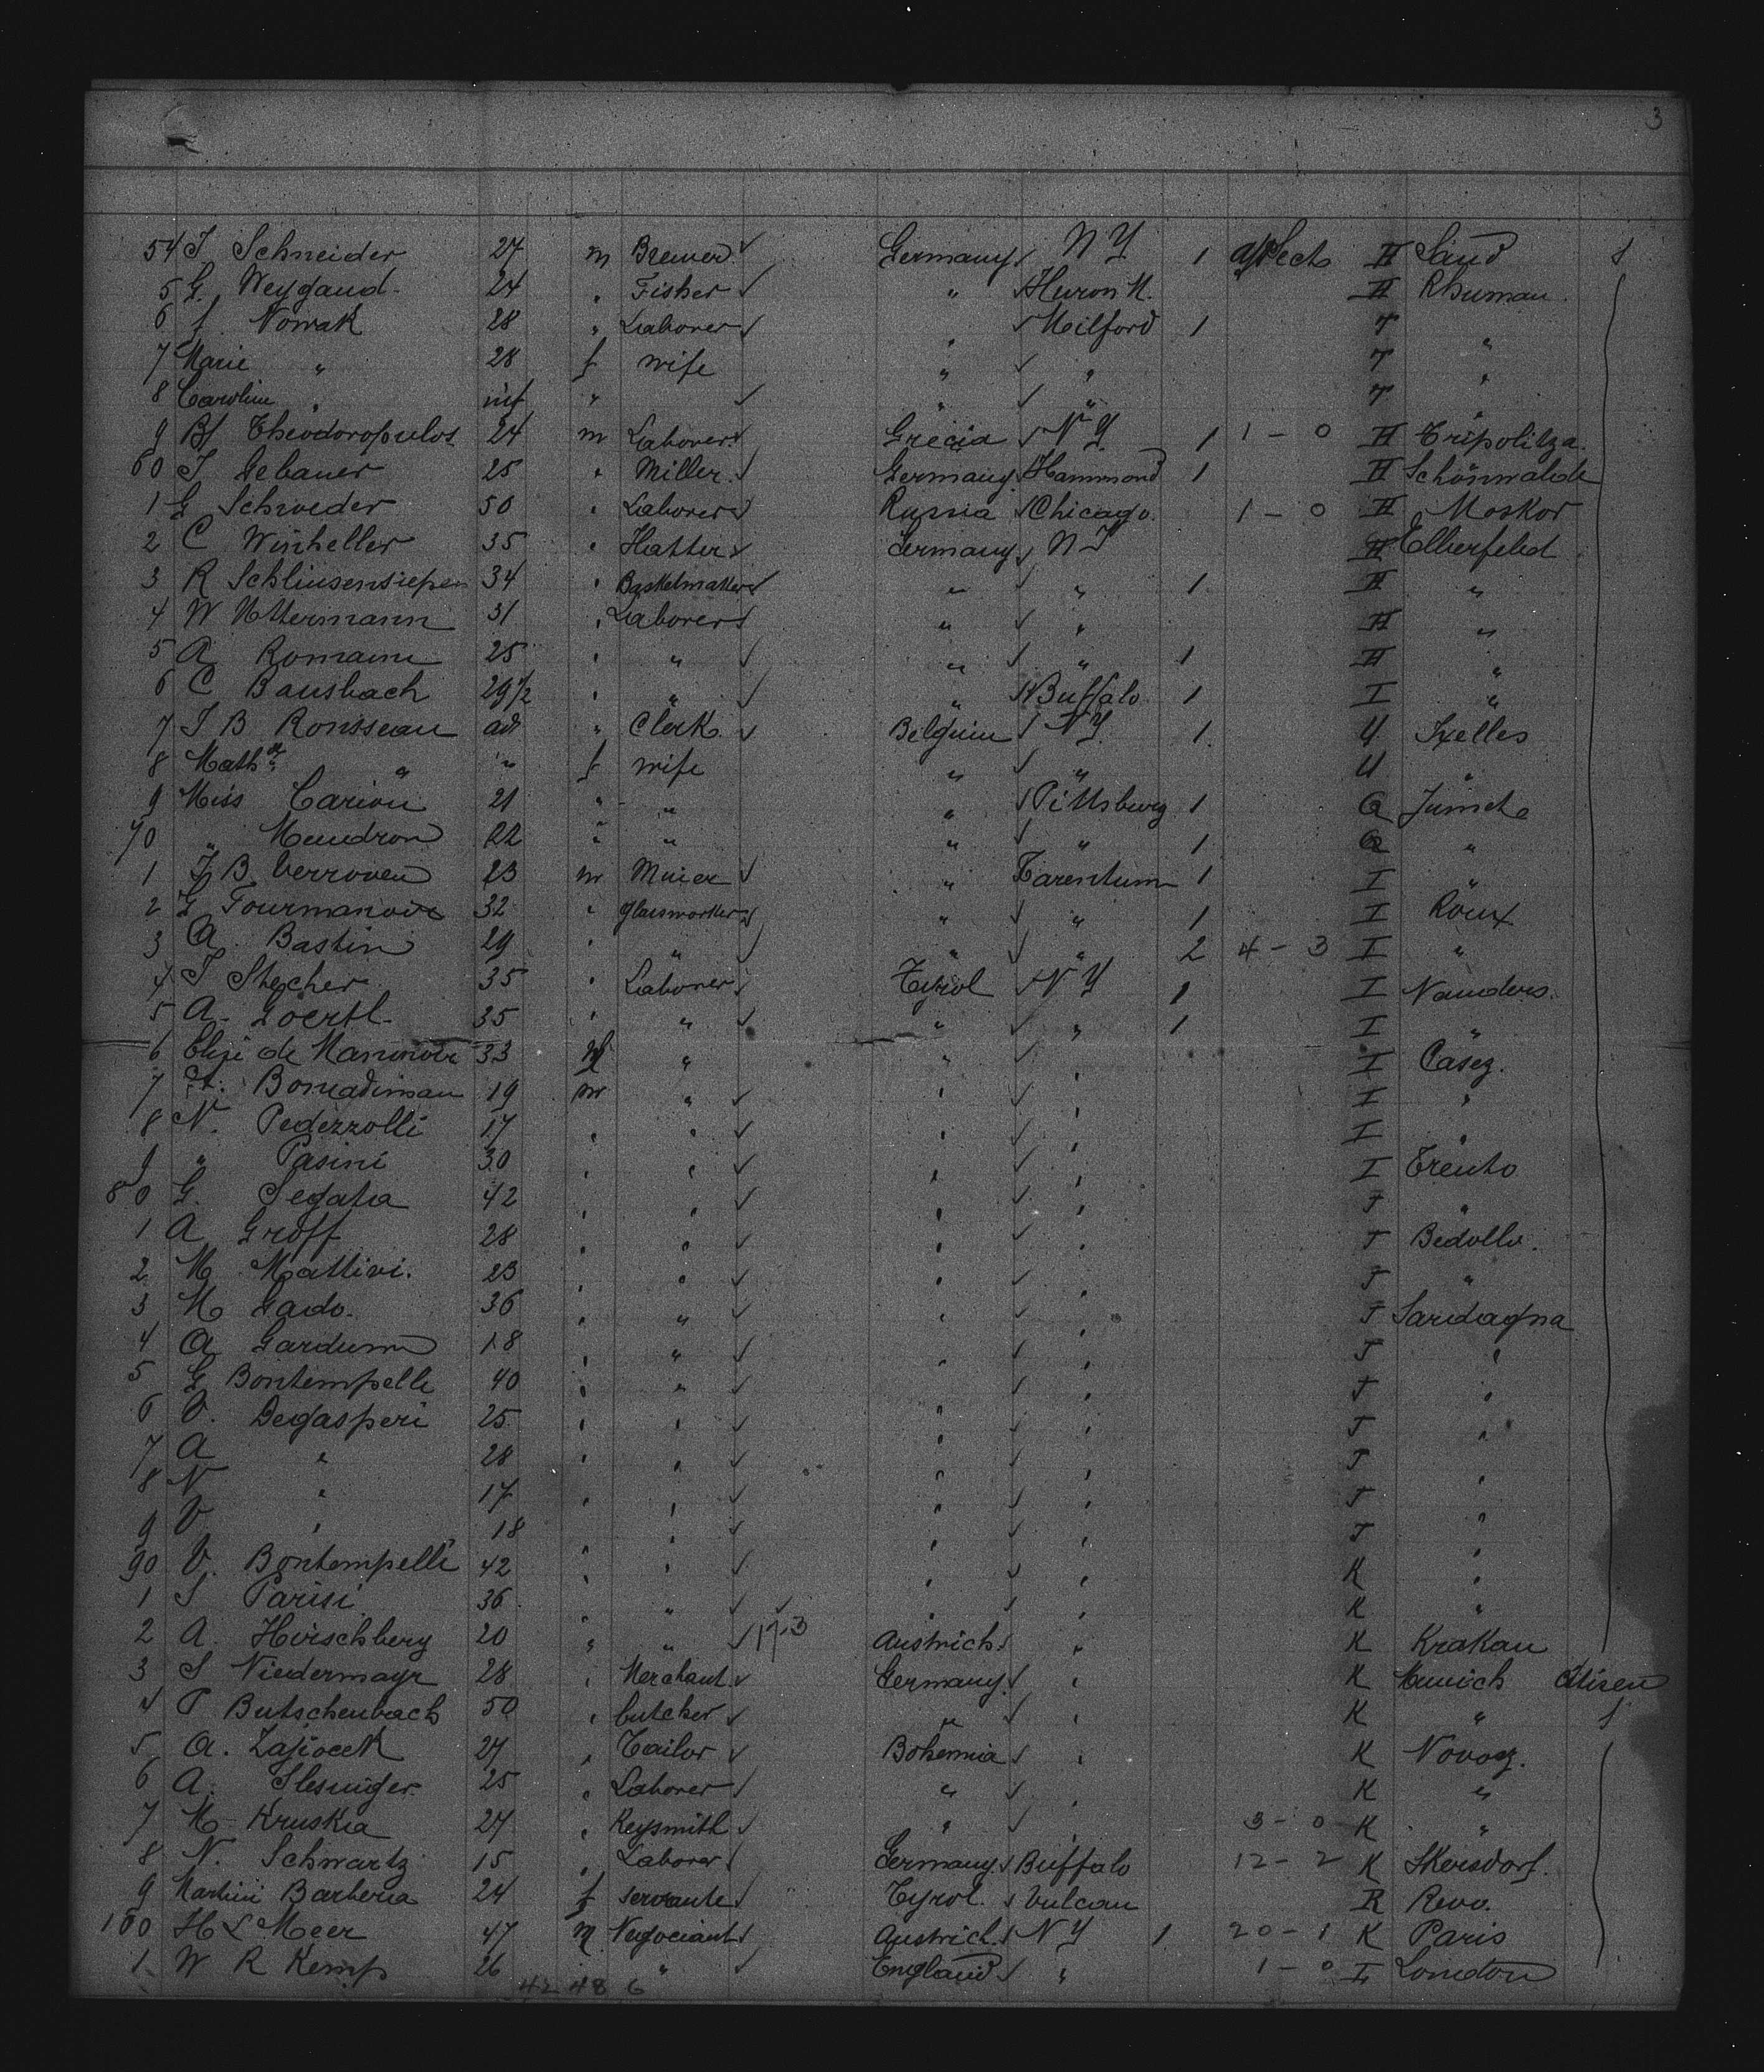 3
54 J Schneider 27 m Brewer Germany NY 1 effects H Sand
5 G. Weygand 24 " Fisher " Huron H. H Rhuman
6 J. Nowak 28 " Laborer " Milford 1 T "
7 Marie " 28 f wife " " T "
8 Carolin " inf " " " T "
9 Bf Theodoropulos 24 m Laborer Grecia NY 1 1 - 0 H Tripolitza
60 J Gebauer 25 " Miller Germany Hammond 1 H Schönwalde
1 G Schroeder 50 " Laborer Russia Chicago 1 - 0 H Moskor
2 C Winheller 35 " Hatter Germany NY H Elberfeld
3 R Schliesensiepen 34 " Basketmaker " " 1 H "
4 W Ottermann 31 " Laborer " " H "
5 A Romain 25 " " " " 1 H "
6 C Bausbach 29 1/2 " " " Buffalo 1 I "
7 J B Rousseau ad " Clerk Belguim NY 1 U Ixelles
8 Mathde " " f wife " " U "
9 Miss Carion 21 " " " Pittsburg 1 Q Jumet
70 " Maudron 22 " " " " 1 Q "
1 J B Verroven 23 m Miner " Tarentum 1 I "
2 G Fourmanoir 32 " glassworker " " 1 I Roux
3 A Bastin 29 " " " " 2 4 - 3 I "
4 J Stecher 35 " Laborer Tyrol NY 1 I Nauders
5 A. Goertl 35 " " " " 1 I "
6 Elise de Mannoir 33 f " " " I Casez
7 Bonadiman 19 m " " " I "
8 N. Pedezzolli 17 " " " " I "
9 " Pasini 30 " " " " I Trento
80 G. Segata 42 " " " " J "
1 A Groff 28 " " " " J Bedollo
2 M Mattivi 23 " " " " J "
3 M Gado 36 " " " " J Sardagna
4 A Gardumi 18 " " " " J "
5 G Bontempelli 40 " " " J "
6 V. Degasperi 25 " " " " J "
7 A " 28 " " " " J "
8 N " 17 " " " " J "
9 V " 18 " " " " J "
90 V. Bontempelli 42 " " " " K "
1 S Parisi 36 " " " " K "
2 A. Hirschberg 20 " " 17.3 Austrich " K Krakau
3 S Niedermayr 28 " Merchant Germany " K Munich Citizen
4 P Butschenbach 50 " butcher " " K "
5 A. Zajiocek 27 " Tailor Bohemia " K
6 A. Slesinger 25 " Laborer " " K "
7 M Kruska 27 " Keysmith " " 3 - 0 K "
8 N. Schwartz 15 " Laborer Germany Buffalo 12 - 2 K Skersdorf
9 Martini Barberia 24 f servante Tyrol Vulcan K Revo
100 H L Meer 47 m Negociant Austrich NY 1 20 - 1 K Paris
1 W R Kemp 26 " " England " 1 - 0 L London
42 48 6